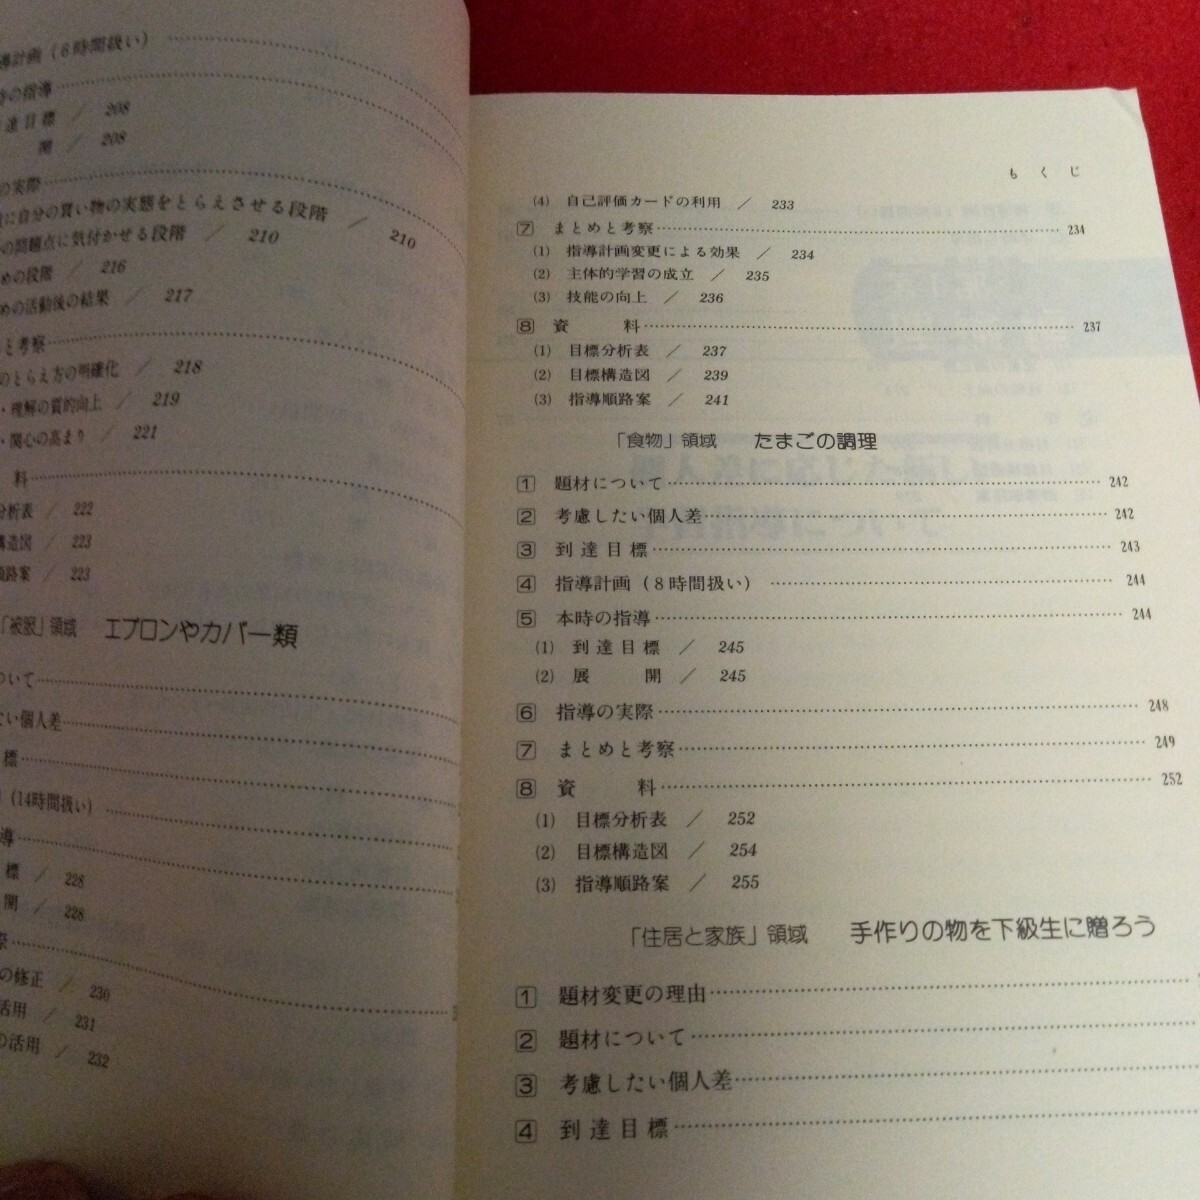 導計画（6時間扱い）
時の指導
達目標 ／ 208
開 ／ 208
の実際
に自分の買い物の実態をとらえさせる段階 ／ 210
の問題点に気付かせる段階 ／ 210
めの段階 ／ 216
めの活動後の結果 ／ 217
と考察
のとらえ方の明確化 ／ 218
・理解の質的向上 ／ 219
・関心の高まり ／ 221
料
分析表 ／ 222
構造図 ／ 223
順路案 ／ 223
「被服」領域 エプロンやカバー類
ついて
ない個人差
標
（14時間扱い）
導
標 ／ 228
開 ／ 228
際
の修正 ／ 230
活用 ／ 231
の活用 ／ 232
もくじ
(4) 自己評価カードの利用 ／ 233
7 まとめと考察 234
(1) 指導計画変更による効果 ／ 234
(2) 主体的学習の成立 ／ 235
(3) 技能の向上 ／ 236
8 資 料 237
(1) 目標分析表 ／ 237
(2) 目標構造図 ／ 239
(3) 指導順路案 ／ 241
「食物」領域 たまごの調理
1 題材について 242
2 考慮したい個人差 242
3 到達目標 243
4 指導計画（8時間扱い） 244
5 本時の指導 244
(1) 到達目標 ／ 245
(2) 展 開 ／ 245
6 指導の実際 248
7 まとめと考察 249
8 資 料 252
(1) 目標分析表 ／ 252
(2) 目標構造図 ／ 254
(3) 指導順路案 ／ 255
「住居と家族」領域 手作りの物を下級生に贈ろう
1 題材変更の理由
2 題材について
3 考慮したい個人差
4 到達目標